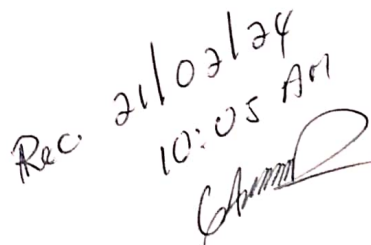 Rec. 21/02/24
10:05 AM